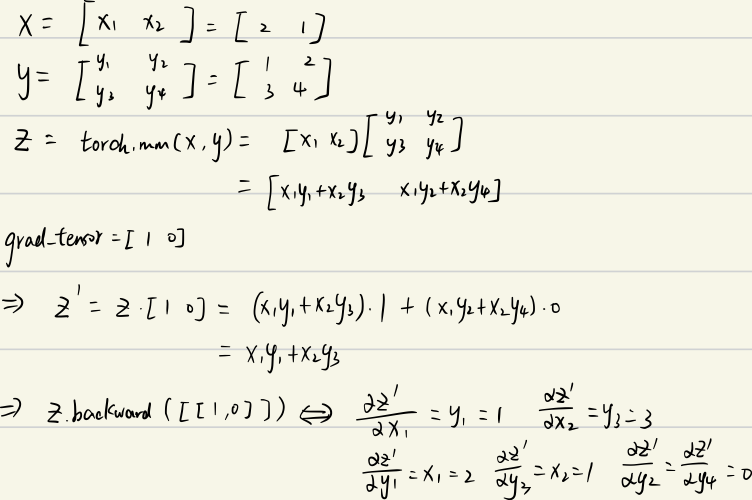 x = [ x₁ x₂ ] = [ 2 1 ]
y = [ y₁ y₂ ] = [ 1 2 ]
y₃ y₄ 3 4
z = torch.mm(x, y) = [x₁ x₂] [ y₁ y₂ ]
y₃ y₄
= [x₁y₁+x₂y₃ x₁y₂+x₂y₄]
grad_tensor = [ 1 0 ]
⇒ z' = z · [ 1 0 ] = (x₁y₁+x₂y₃)·1 + (x₁y₂+x₂y₄)·0
= x₁y₁+x₂y₃
⇒ z.backward ([[1,0]]) ⇔ ∂z'/∂x₁ = y₁ = 1 ∂z'/∂x₂ = y₃ = 3
∂z'/∂y₁ = x₁ = 2 ∂z'/∂y₃ = x₂ = 1 ∂z'/∂y₂ = ∂z'/∂y₄ = 0